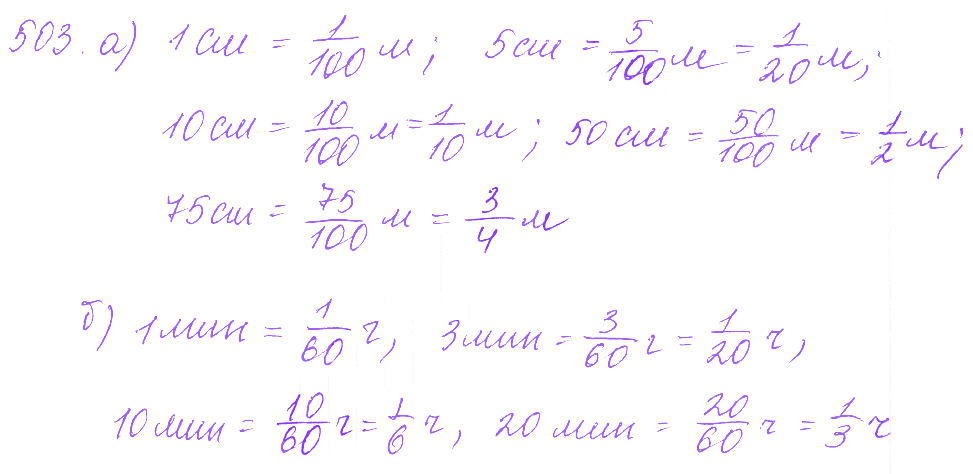 503. а) 1 см = 1/100 м; 5 см = 5/100 м = 1/20 м;
10 см = 10/100 м = 1/10 м; 50 см = 50/100 м = 1/2 м;
75 см = 75/100 м = 3/4 м
б) 1 мин = 1/60 ч, 3 мин = 3/60 ч = 1/20 ч,
10 мин = 10/60 ч = 1/6 ч, 20 мин = 20/60 ч = 1/3 ч